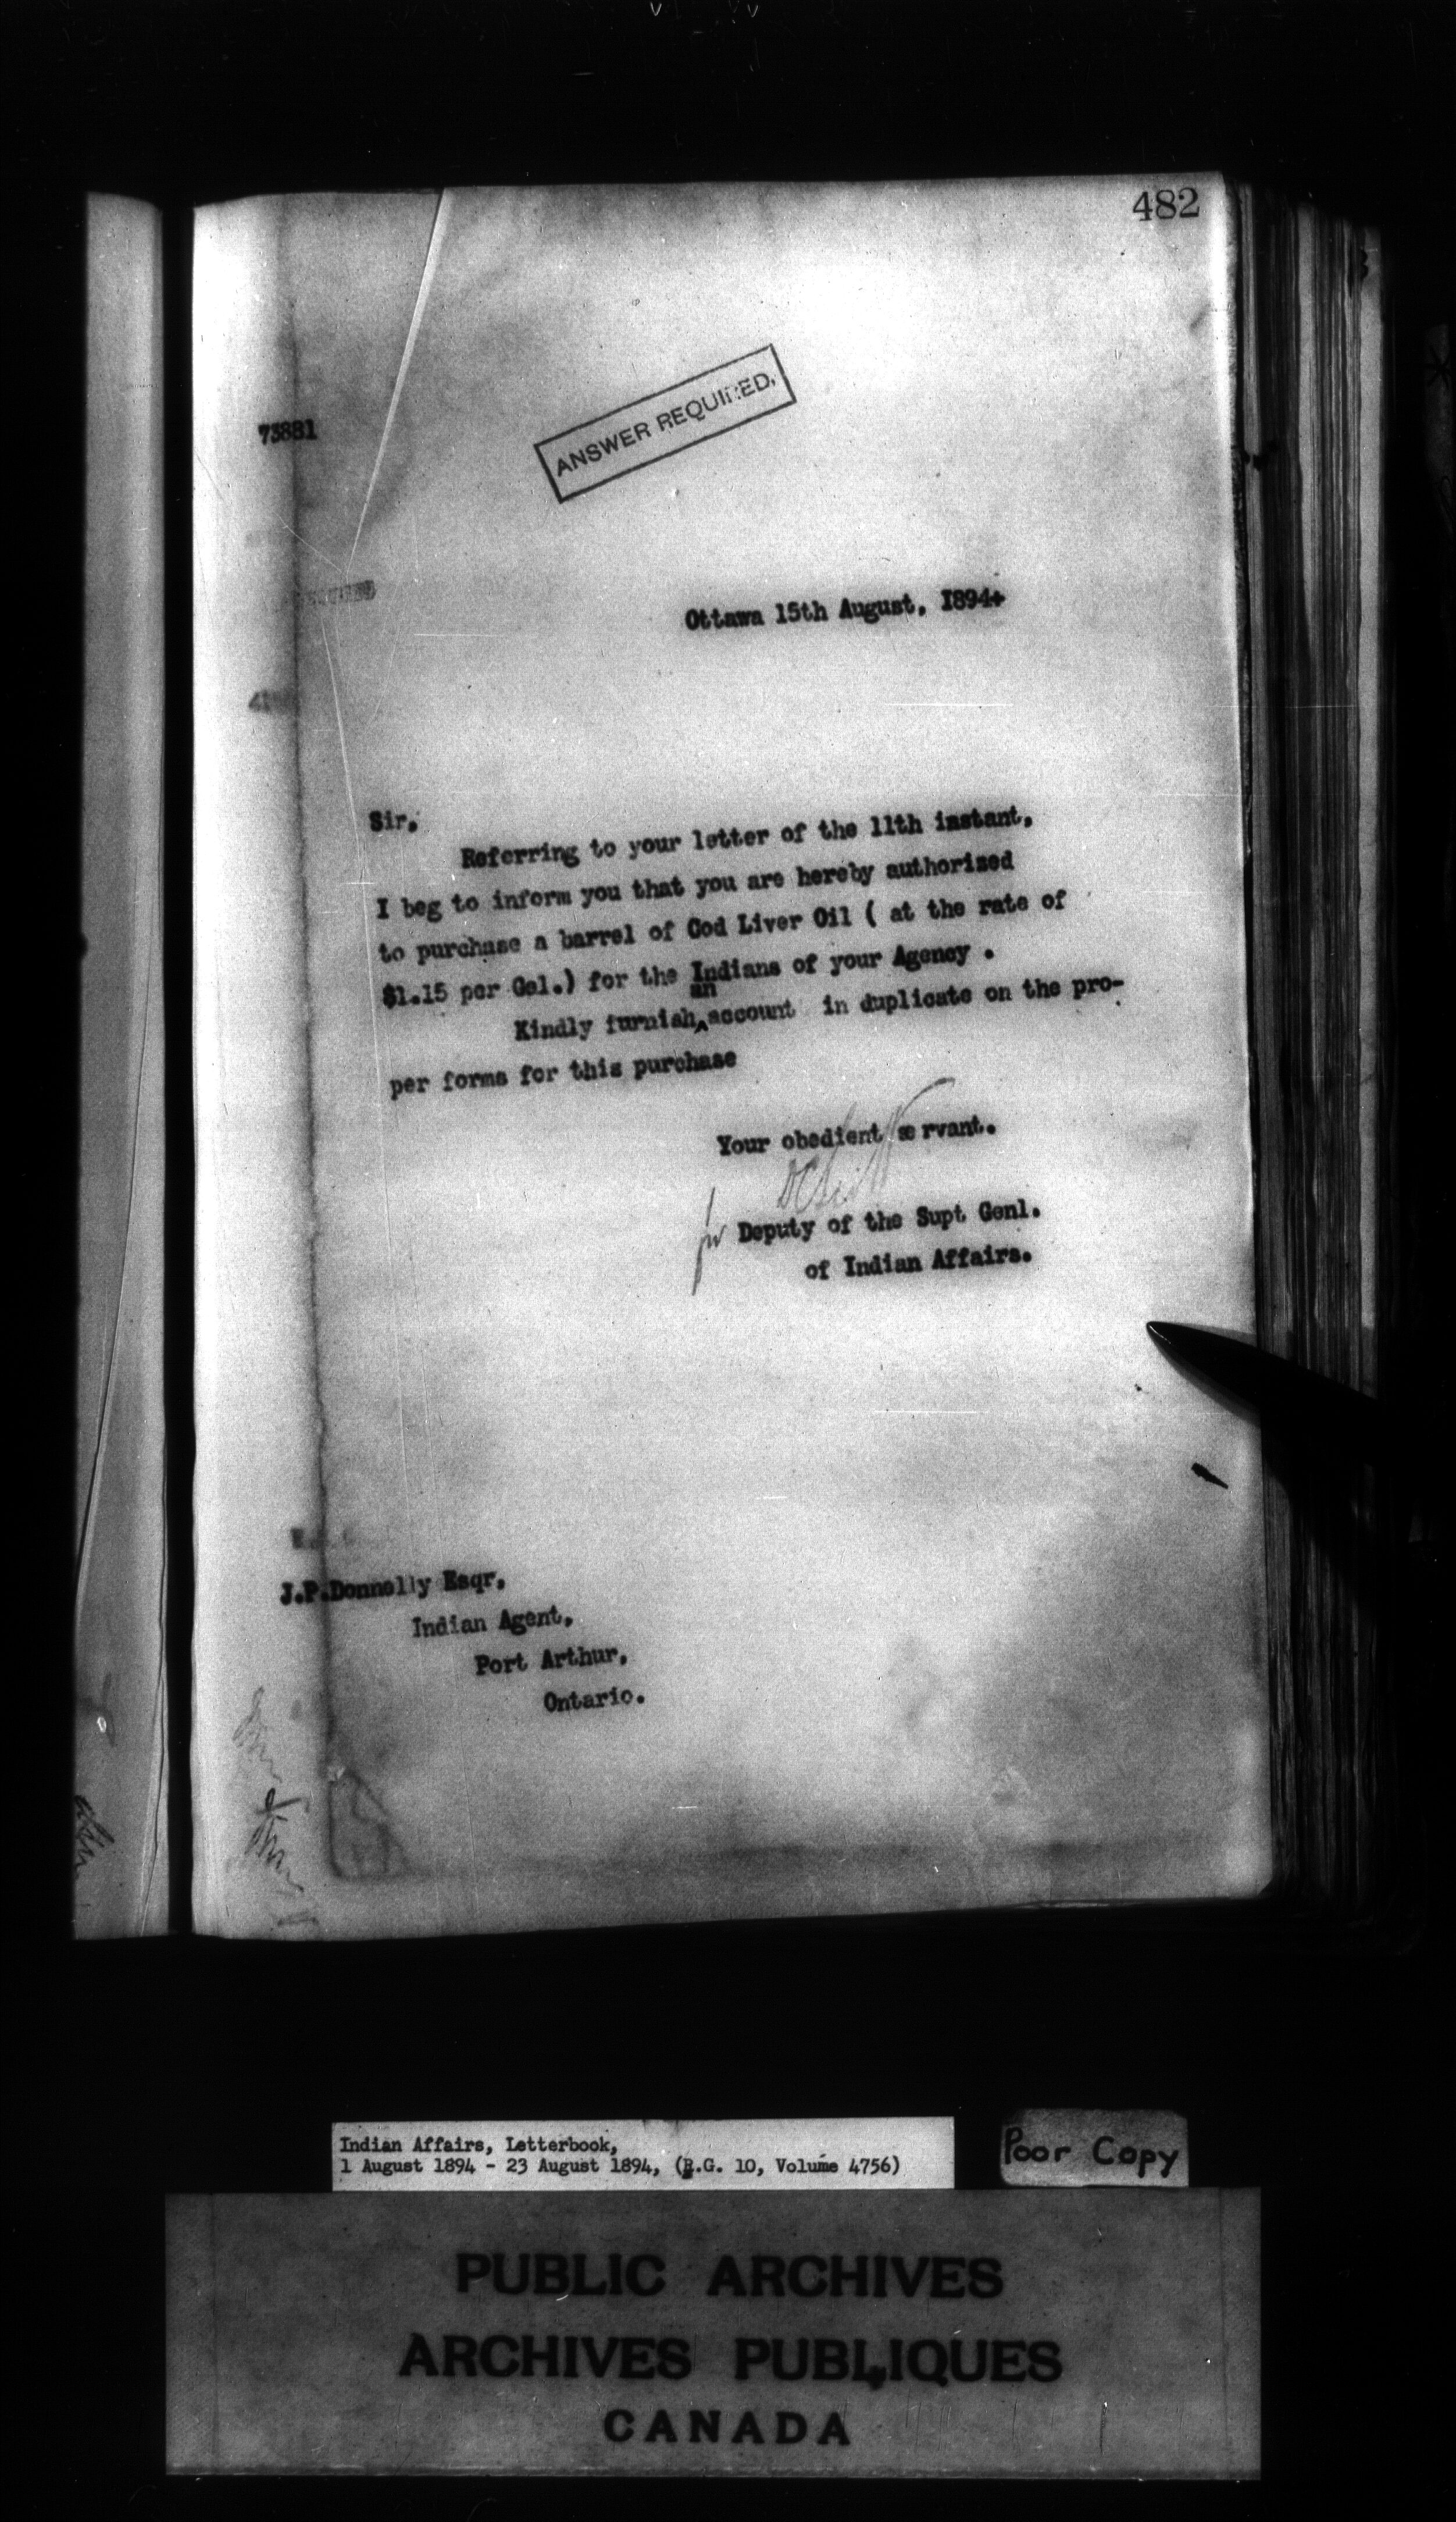 482
73881
ANSWER REQUIRED.
Ottawa 15th August, 1894
Sir.
Referring to your letter of the 11th instant,
I beg to inform you that you are hereby authorized
to purchase a barrel of Cod Liver Oil ( at the rate of
$1.15 per Gal.) for the Indians of your Agency .
Kindly furnish an account in duplicate on the pro-
per forms for this purchase
Your obedient servant.
D C Scott
for Deputy of the Supt Genl.
of Indian Affairs.
J.P.Donnelly Esqr,
Indian Agent,
Port Arthur,
Ontario.
Indian Affairs, Letterbook,
1 August 1894 - 23 August 1894, (R.G. 10, Volume 4756)
Poor Copy
PUBLIC ARCHIVES
ARCHIVES PUBLIQUES
CANADA